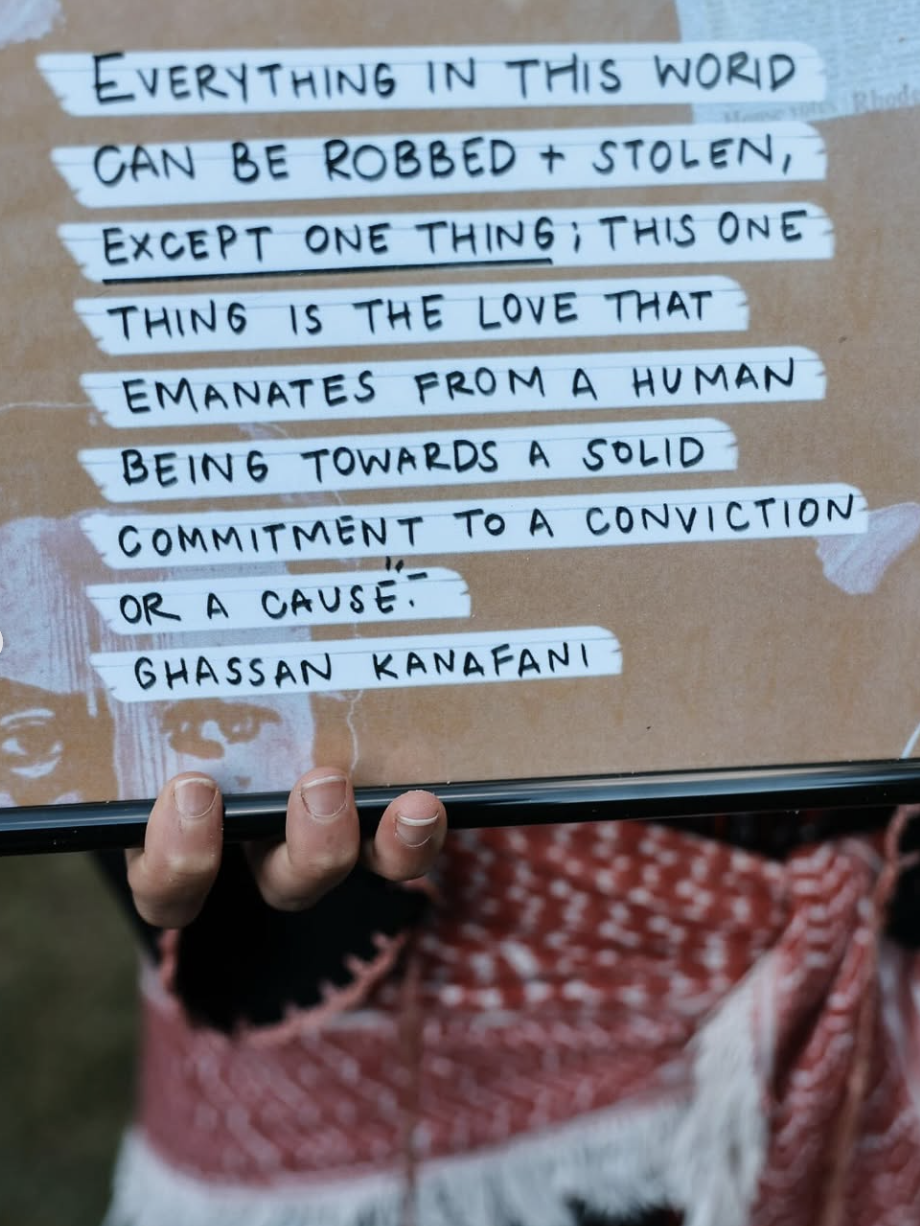 House votes Rhode
EVERYTHING IN THIS WORLD
CAN BE ROBBED + STOLEN,
EXCEPT ONE THING; THIS ONE
THING IS THE LOVE THAT
EMANATES FROM A HUMAN
BEING TOWARDS A SOLID
COMMITMENT TO A CONVICTION
OR A CAUSE." -
GHASSAN KANAFANI